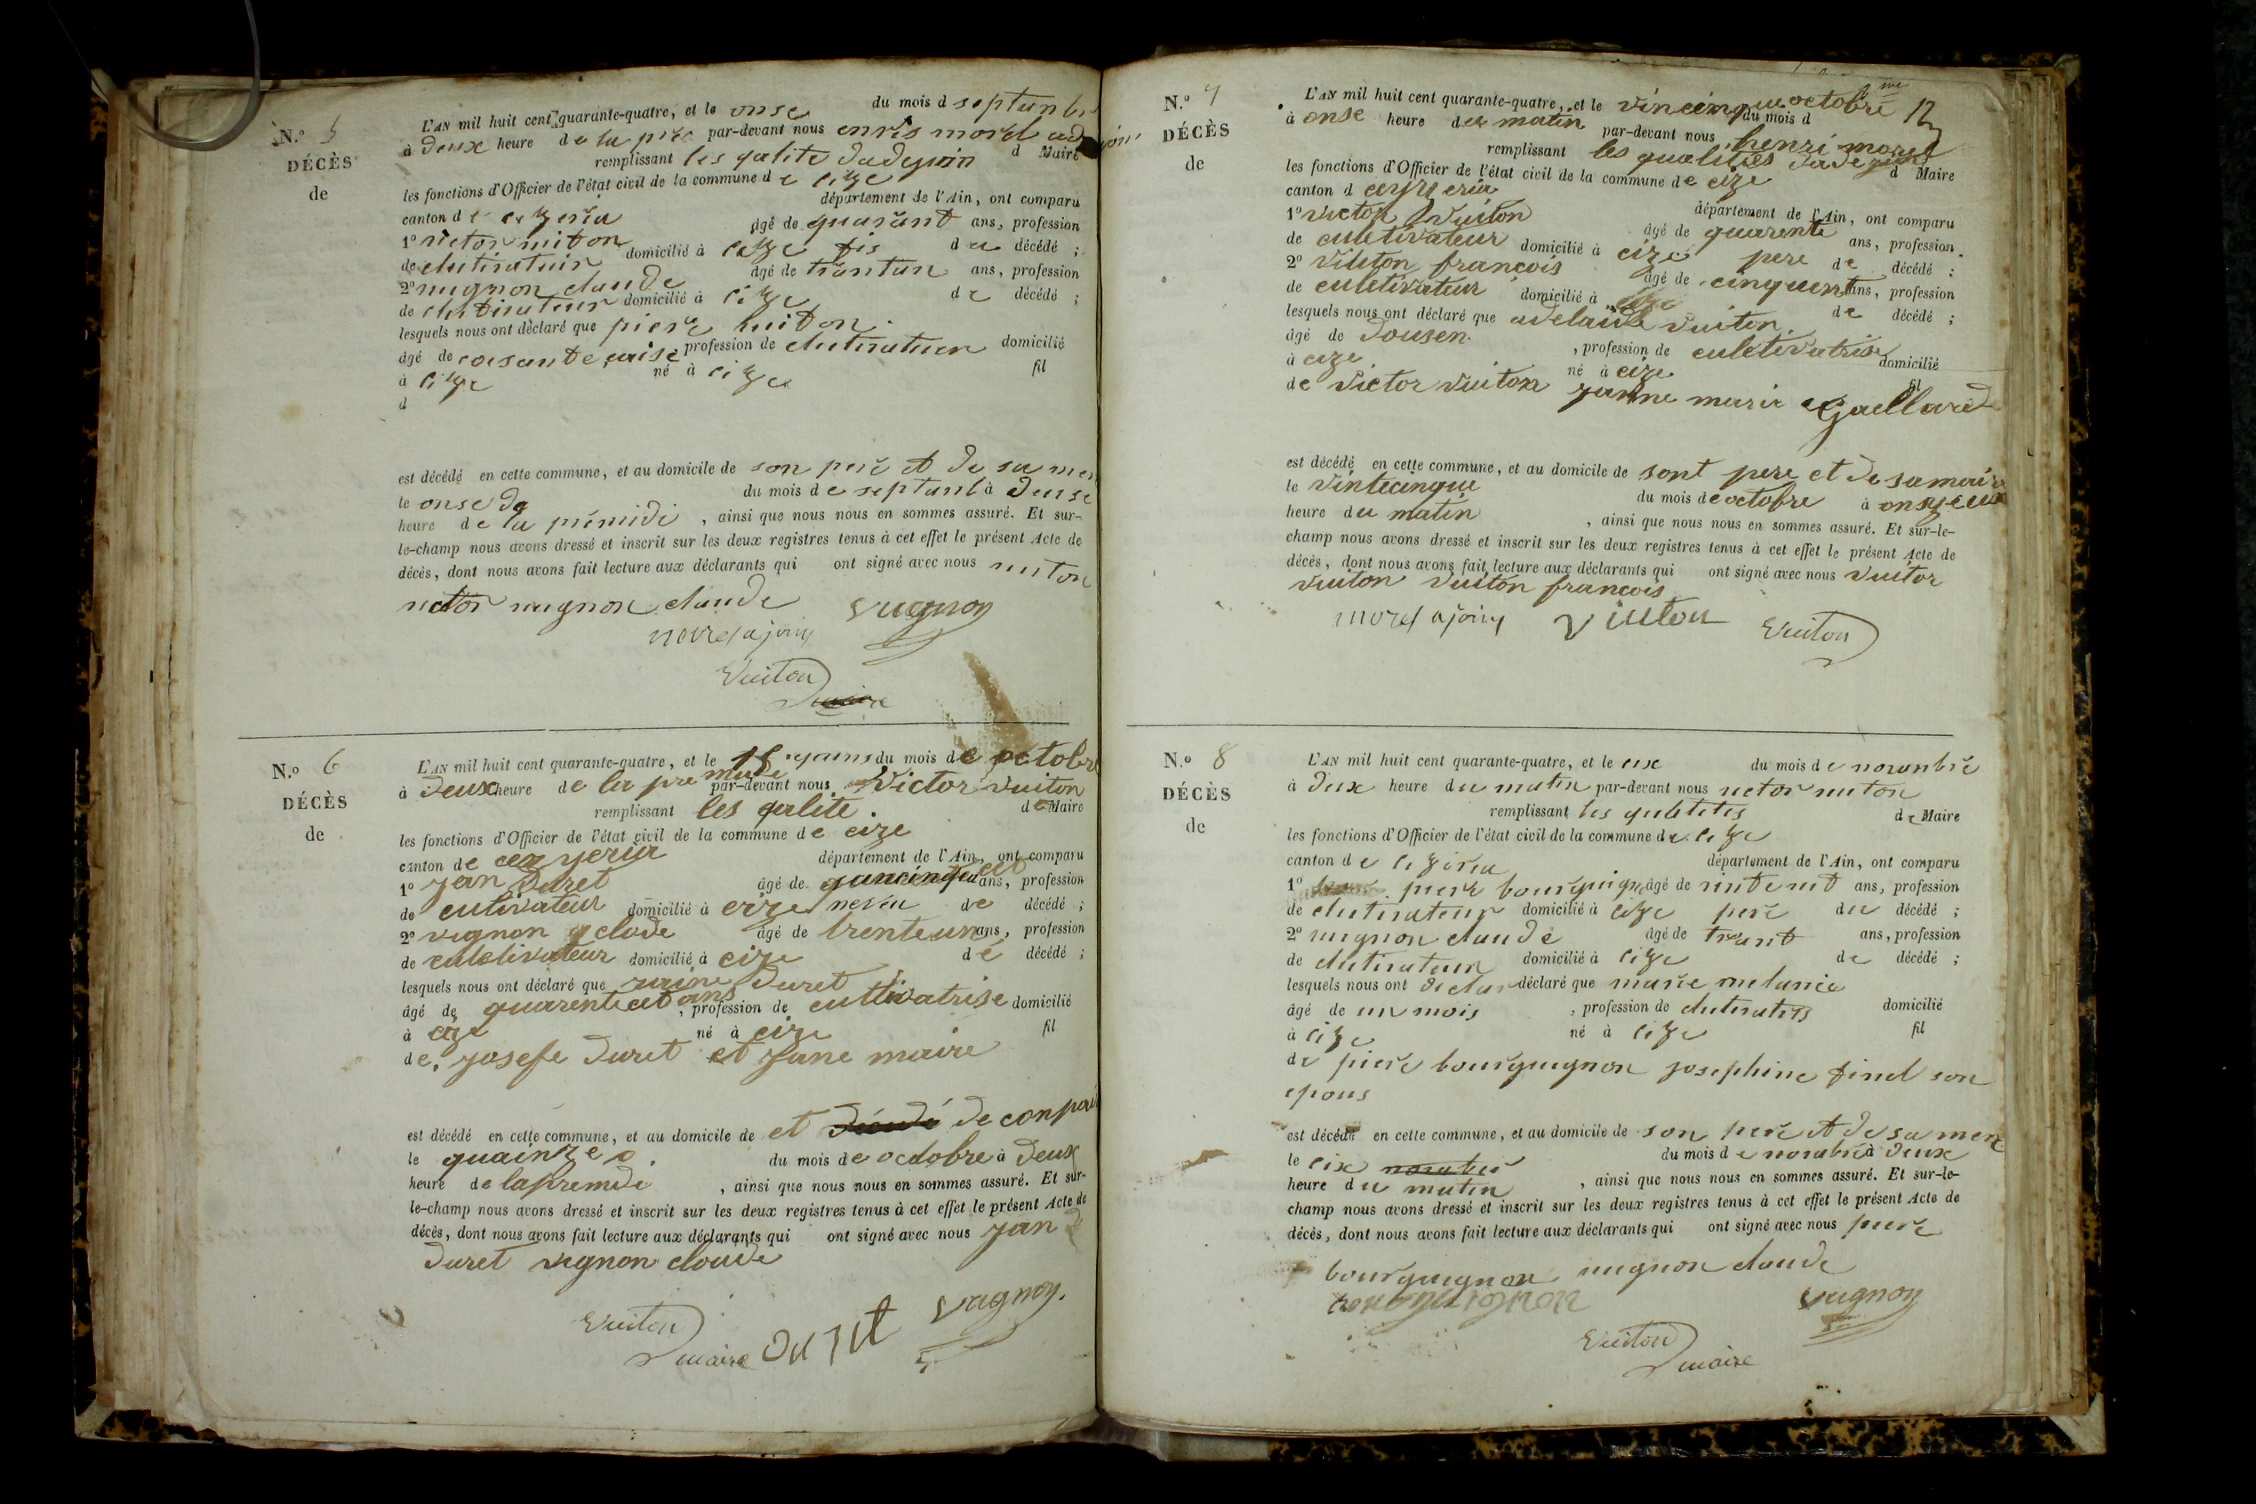 N.º 5
DÉCÈS
de
L'AN mil huit cent quarante-quatre, et le onse du mois d septunbre
à deux heure de la pre par-devant nous enris morel
remplissant les qalite dadyoin d Maire
les fonctions d'Officier de l'état civil de la commune de cize
canton de département de l'Ain, ont comparu
1º victor vuiton âgé de quarant ans, profession
de domicilié à cize fis du décédé ;
2º vugnon claude âgé de trantun ans, profession
de domicilié à cize de décédé ;
lesquels nous ont déclaré que piere vuiton
âgé de profession de domicilié
à cize né à cize fil
d
est décédé en cette commune, et au domicile de son pere et de sa mere
le onse de du mois de septunb à deuse
heure de la prémidi , ainsi que nous nous en sommes assuré. Et sur-
le-champ nous avons dressé et inscrit sur les deux registres tenus à cet effet le présent Acte de
décès, dont nous avons fait lecture aux déclarants qui ont signé avec nous vuiton
victor vugnon claude vugnon
morel ajoin
Vuiton
maire
N.º 6
DÉCÈS
de
L'AN mil huit cent quarante-quatre, et le 15 du mois de octobre
à deux heure de la premide par-devant nous Victor vuiton
remplissant les qalite de Maire
les fonctions d'Officier de l'état civil de la commune de cize
canton de ceyzeria département de l'Ain, ont comparu
1º jan Duret âgé de ans, profession
de cultivateur domicilié à cize neveu de décédé ;
2º vugnon clode âgé de trenteun ans, profession
de culetivateur domicilié à cize de décédé ;
lesquels nous ont déclaré que Duret
âgé de ans, profession de cultivatrise domicilié
à cize né à cize fil
de josefe Duret et jane maire
est décédé en cette commune, et au domicile de et de
le quainze du mois de octobre à Deux
heure de lapremide , ainsi que nous nous en sommes assuré. Et sur-
le-champ nous avons dressé et inscrit sur les deux registres tenus à cet effet le présent Acte de
décès, dont nous avons fait lecture aux déclarants qui ont signé avec nous jan
Duret vugnon cloude
Vuiton maire Duret vugnon
N.º 7
DÉCÈS
de
12
L'AN mil huit cent quarante-quatre, et le vincinque du mois d octobre
à onse heure deu matin par-devant nous henri morel
remplissant les qualities dadejoins d Maire
les fonctions d'Officier de l'état civil de la commune de cize
canton d ceyzeria département de l'Ain, ont comparu
1º victor vuiton âgé de quarente ans, profession
de culetivateur domicilié à cize pere de décédé ;
2º vuiton francois âgé de cinquent ans, profession
de culetivateur domicilié à cize de décédé ;
lesquels nous ont déclaré que adelaide vuiton
âgé de dousen , profession de culetivatrise domicilié
à cize né à cize fil
de victor vuiton janne marie Gaellard
est décédé en cette commune, et au domicile de sont pere et de sa
le vintecinque du mois de octobre à
heure deu matin , ainsi que nous nous en sommes assuré. Et sur-le-
champ nous avons dressé et inscrit sur les deux registres tenus à cet effet le présent Acte de
décès, dont nous avons fait lecture aux déclarants qui ont signé avec nous vuitor
vuiton vuiton francois
morel ajoin vuiton Vuiton
N.º 8
DÉCÈS
de
L'AN mil huit cent quarante-quatre, et le cix du mois de novanbre
à deux heure du matin par-devant nous victor vuiton
remplissant les de Maire
les fonctions d'Officier de l'état civil de la commune de cize
canton de département de l'Ain, ont comparu
1º piere bourguignon âgé de ans, profession
de domicilié à cize pere du décédé ;
2º vugnon claude âgé de trant ans, profession
de domicilié à cize de décédé ;
lesquels nous ont déclaré que marie melanie
âgé de un mois , profession de domicilié
à cize né à cize fil
de piere bourguignon josephine finel son
epous
est décédé en cette commune, et au domicile de son pere et de sa mere
le cix du mois de à deux
heure du matin , ainsi que nous nous en sommes assuré. Et sur-le-
champ nous avons dressé et inscrit sur les deux registres tenus à cet effet le présent Acte de
décès, dont nous avons fait lecture aux déclarants qui ont signé avec nous piere
bourguignon vugnon claude
bourguignon vugnon
Vuiton
maire